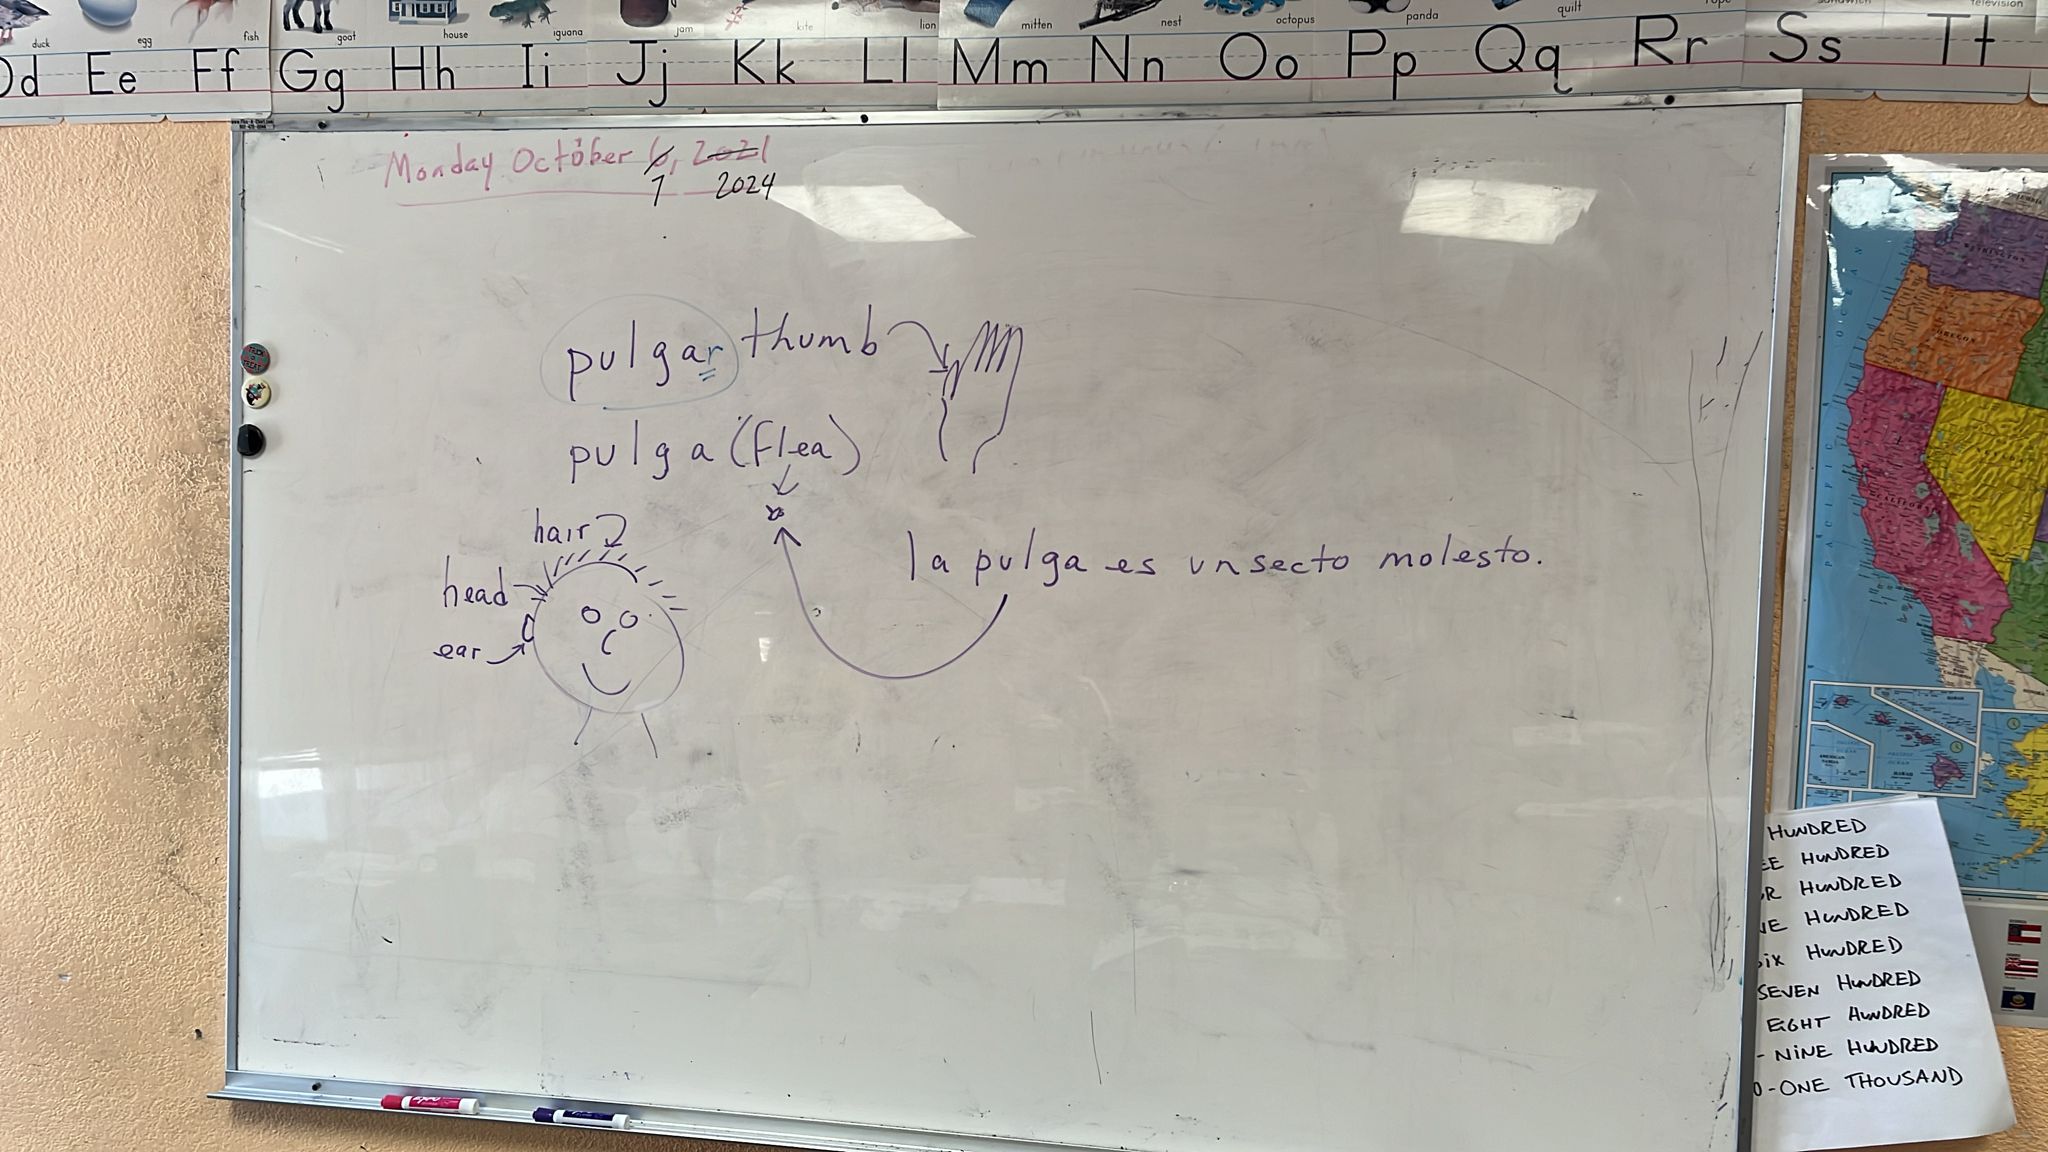 duck egg fish goat house iguana jam kite lion mitten nest octopus panda quilt rope sandwich television
Dd Ee Ff Gg Hh Ii Jj Kk Ll Mm Nn Oo Pp Qq Rr Ss Tt
Monday October 6, 2021
7 2024
pulgar thumb
pulga (flea)
hair
head
ear
la pulga es unsecto molesto.
WASHINGTON
OREGON
NEVADA
CALIFORNIA
PACIFIC OCEAN
HAWAII
HUNDRED
EE HUNDRED
R HUNDRED
VE HUNDRED
SIX HUNDRED
SEVEN HUNDRED
EIGHT HUNDRED
- NINE HUNDRED
0-ONE THOUSAND